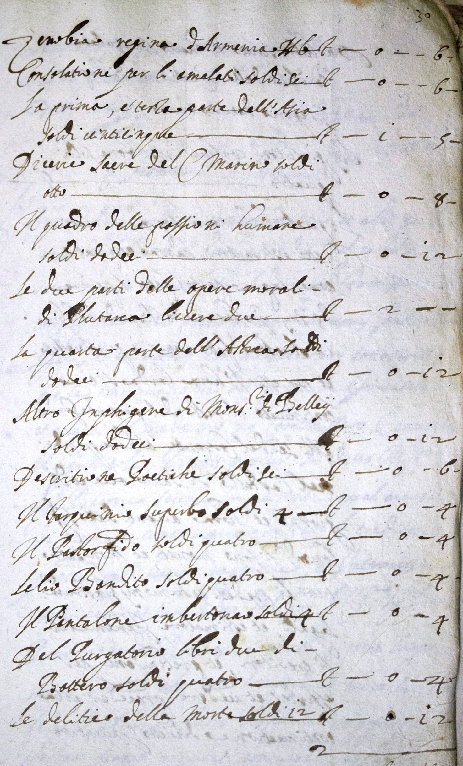 30
Zenobia regina d'Armenia ₶ — 0 — 6
Consolatione per li amalati soldi sei ₶ — 0 — 6
La prima, e terza parte dell'Asia
soldi vinticinque ₶ — 1 — 5
Dicerie sacre del C Marino soldi
otto ₶ — 0 — 8
Il quadro delle passioni humane
soldi dodeci ₶ — 0 — 12
Le due parti delle opere morali
di Plutarco lire due ₶ — 2 — —
La quarta parte dell' soldi
dodeci ₶ — 0 — 12
Altro Imphigene di Mons.r di Belley
soldi dodeci ₶ — 0 — 12
Descritione Poetiche soldi sei ₶ — 0 — 6
Il Tarquinio superbo soldi 4 ₶ — 0 — 4
Il Pastorfido soldi quatro ₶ — 0 — 4
Lelio Bandito soldi quatro ₶ — 0 — 4
Il Pantalone imbertonao soldi 4 ₶ — 0 — 4
Del Purgatorio libri due di
Bottero soldi quatro ₶ — 0 — 4
Le delitie della Morte soldi 12 ₶ — 0 — 12